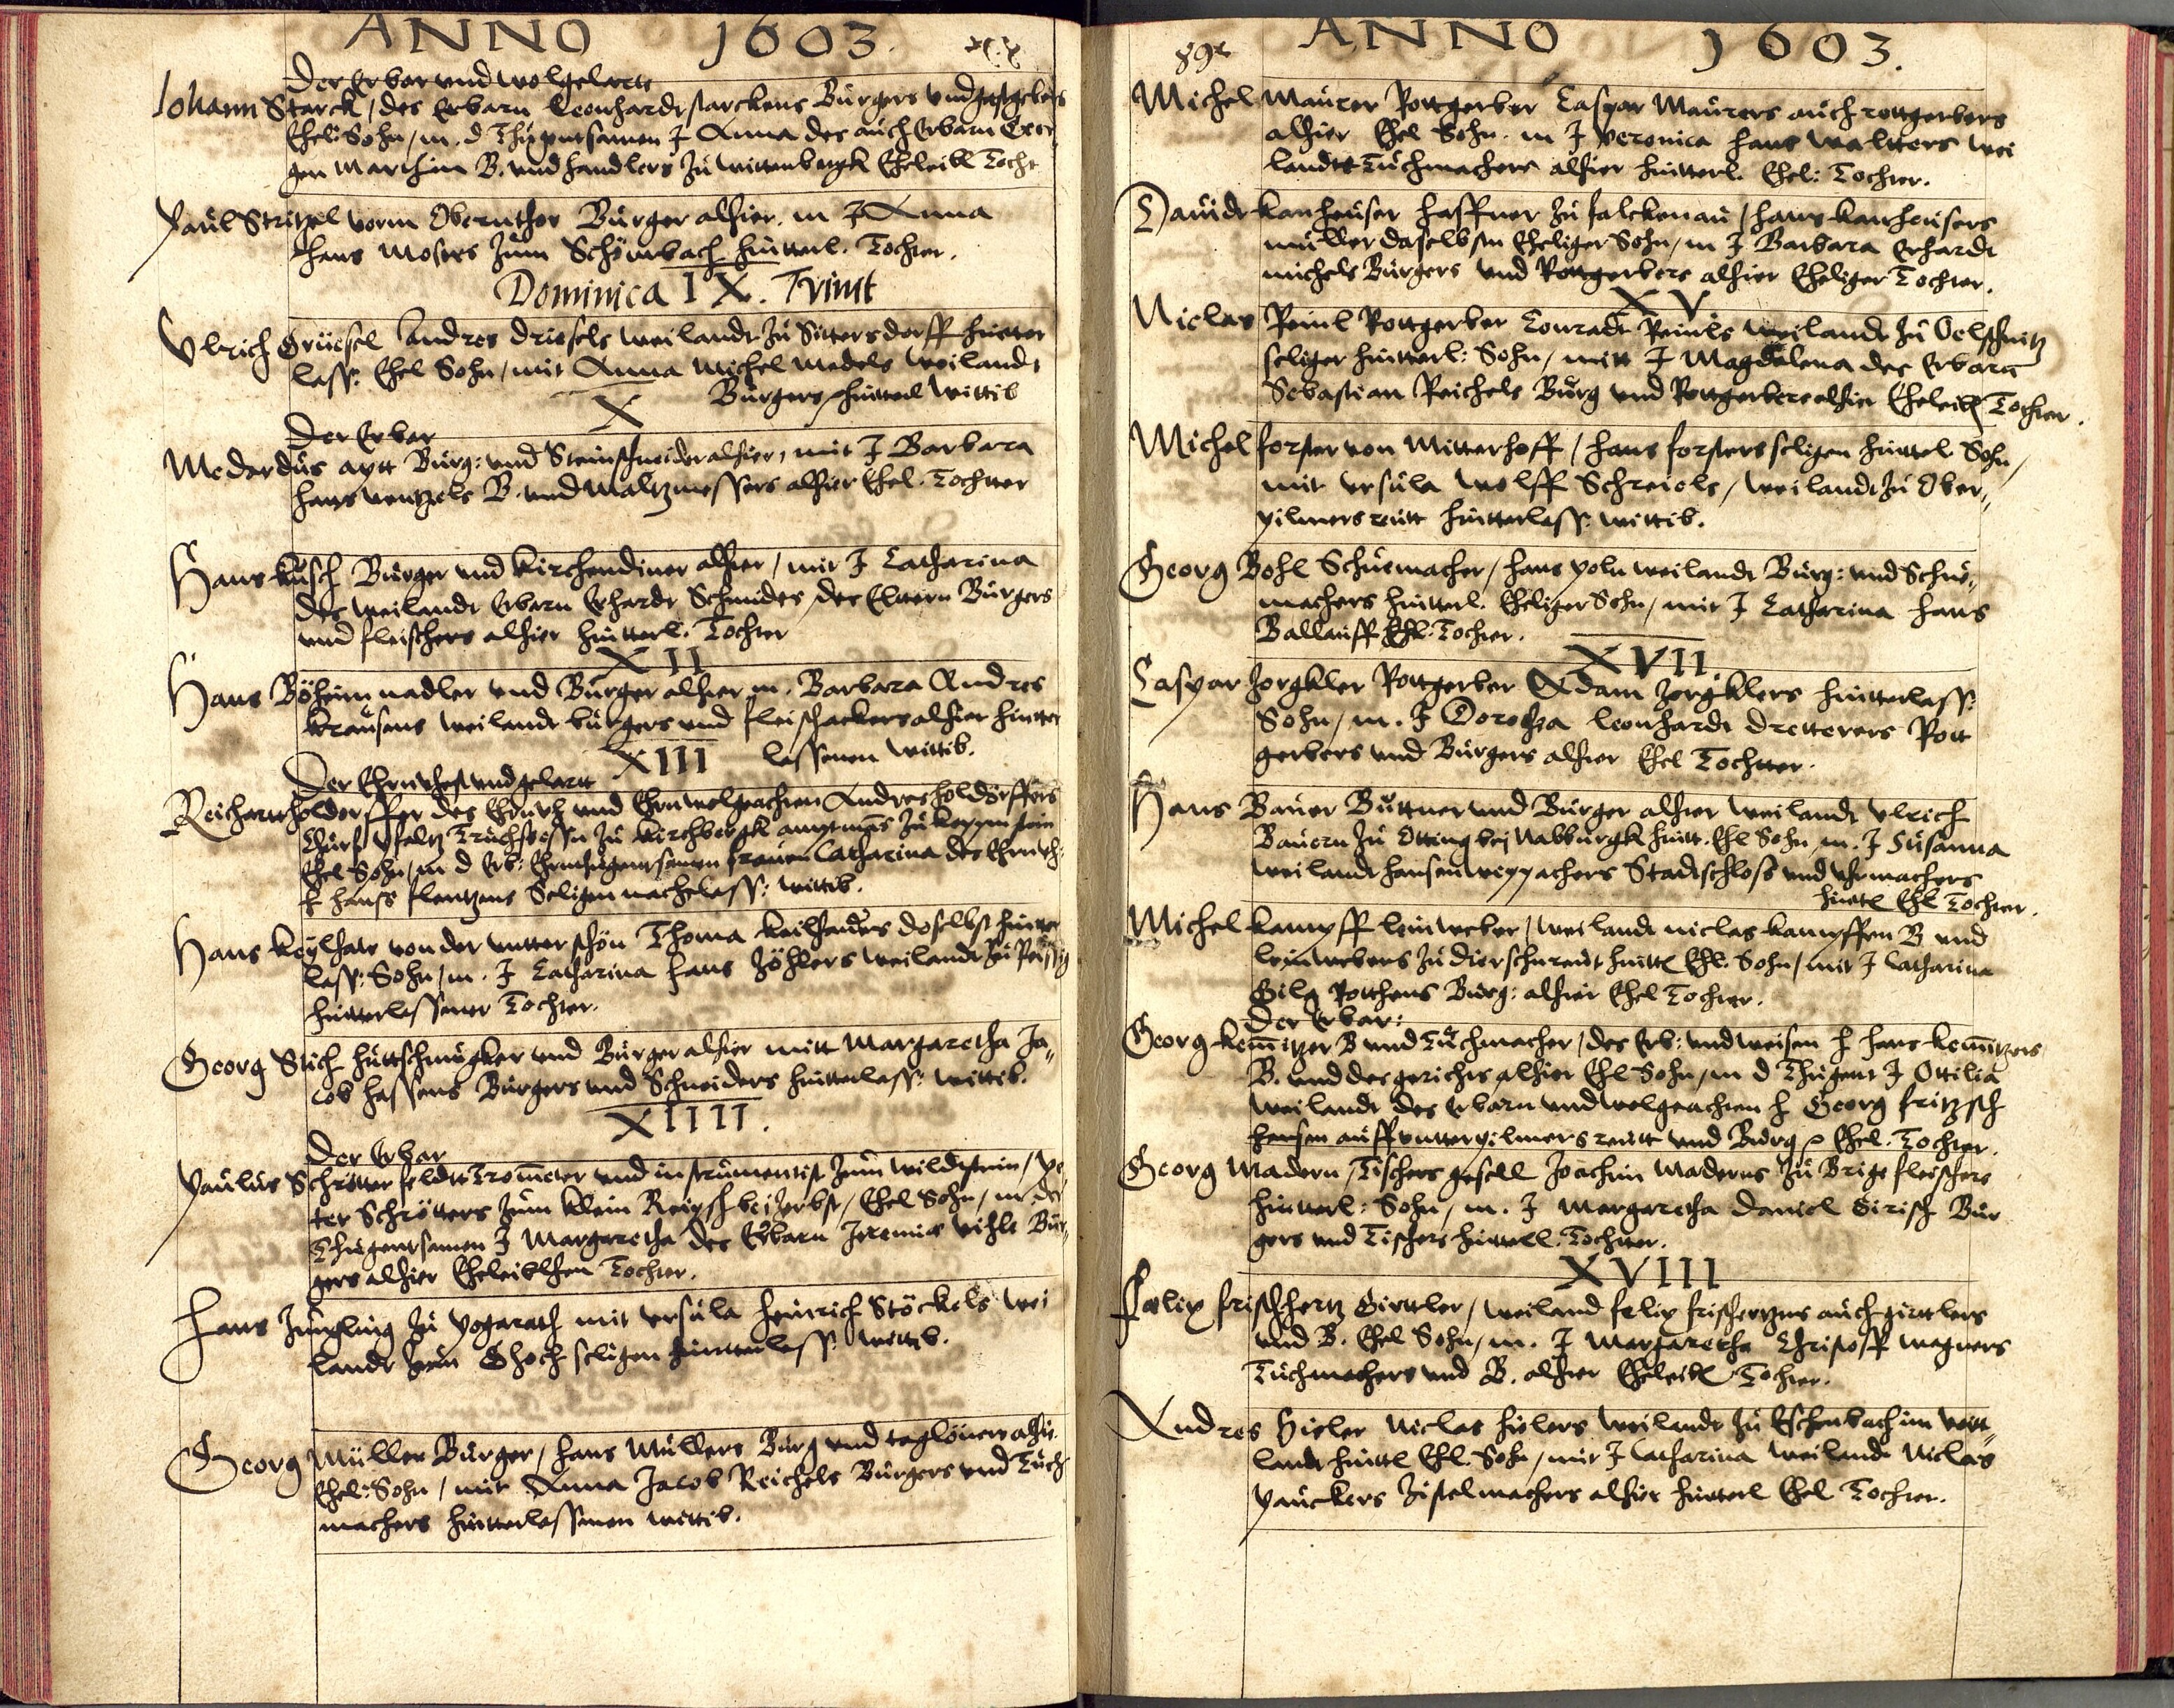 ANNO 1603.
Der Erbar und wolgelertt
Johann Starck / des Erbarn Leonhardt starckens Burgers und gastgebers
Ehel: Sohn / m. d Thugentsamen J Anna des auch Erbarn
gen Marthin B. und handlers zu wittenbergk Eheleibl Tocht
Paul Stritzel vorm Obernthor Burger alhier. m J Anna
Hans Mosers zum Schönbach hinterl. Tochter.
Dominica IX. Trinit
Ulrich Grüesel Andres driesels weilandt zu Sittersdorff hinter
lass: Ehel Sohn / mit Anna Michel Medels weilandt
Burgers hinterl wittib
X
Der Erbar
Medardus aytt Burg: und Steinschneider alhier, mit J Barbara
hans wentzels B. und Maltzmessers alhier Ehel. Tochter
Hans kusch Burger und kirchendiner alhier / mit J Catharina
des weilandt Erbarn Erhardt Schmides / des Eltern Burgers
und fleischers alhier hinterl. Tochter
XII
Hans Böheim nadler und Burger alhier m. Barbara Andres
krausens weilandt burgers und fleischackers alhier hinter
lassenen wittib.
XIII
Der Ehrnvhest und gelartt
Reichartt holderffer des Ehrnvh und Ehrnwolgeachten Andres holdörffers
Churf Pfaltz Truchsessen zu kirchbergk amptmans zu
Ehel Sohn / m d Erb: Ehrntugentsamen frauen Catharina des Ehrnvh:
H hanss flentzens Seligen nachelass: wittib.
Hans keylhaw von der unter schön Thoma keilhauers doselbst hinter
lass: Sohn / m. J Catharina hans zöhlers weilandt zu
hinterlassener Tochter.
Georg Stich huttschmugker und Burger alhier mitt Margaretha Ja„
cob hassens Burgers und Schneiders hinterlass: wittib.
XIIII.
Der Erbar
Paulus Schrötter feldtTrometer und instrumentist zum wildstein / Pe
ter Schrötters zum klein bei zerbst / Ehel Sohn / m. der
Thugentsamen J Margaretha des Erbarn Jeremias Bur„
gers alhier Eheleiblichen Tochter.
Hans Jungling zu pograth mit ursula heinrich Stöckels wei
landt seligen hinterlass: wittib.
Georg Müller Burger / hans Müllers Burg und taglöners alhie
Ehel: Sohn / mit Anna Jacob Reichels Burgers und Tuch
machers hinterlassenen wittib.
89
ANNO 1603.
Michel Maurer Rottgerber Caspar Maurers auch rottgerbers
alhier Ehel Sohn. m J veronica hans waltters wei
landtt Tuchmachers alhier hinterl. Ehel: Tochter.
Davidt kanheuser haffner zu falckenau / hans kanheusers
müller daselbsten Eheliger Sohn / m J Barbara Erhardt
michels Burgers und Rottgerbers alhier Eheliger Tochter.
XV
Niclas Reinl Rottgerber Conradt Reinls weilandt zu Oelschnitz
seliger hinterl: Sohn / mitt J Magdalena des Erbarn
Sebastian Reichels Burg und Rottgerbers alhier Eheleibl Tochter.
Michel forster von Mitterhoff / hans forsters seligen hinterl Sohn /
mit ursula wolff Schreiels / weilandt zu Ober„
pilmersreutt hinterlass: wittib.
Georg Pohl Schuemacher / hans poln weilandt Burg: und Schue„
machers hinterl. Eheliger Sohn / mit J Catharina hans
Ballauff Ehl. Tochter.
XVII.
Caspar zorgkler Rottgerber Adam zorgklers hinterlass:
Sohn / m. J Dorothea leonhardt dretterers Rott
gerbers und Burgers alhier Ehel Tochter.
Hans Bauer Buttner und Burger alhier weilandt Ulrich
Bauern zu Otting bei Nabburgk hintt. Ehl Sohn m. J Susanna
weilandt hansen weypachers Stadtschloss und uhrmachers
hintl Ehl Tochter.
Michel kampff leinweber / weilandt niclas kampffen B und
leinwebers zu dierschnreut hintl Ehl. Sohn / mit J Catharina
Gilg Rotthens Burg: alhier Ehel Tochter.
Der Erbar:
Georg kemnitzer B und Tuchmacher / des Erb: und weisen H hans kemnitzers
B. und des gerichts alhier Ehl Sohn / m d Thugent J Ottilia
weilandt des Erbarn und wolgeachten H Georg fritzsch
hansen auff unterpilmersreutt und Burg Ehel. Tochter.
Georg Madern / Tischersgesell Joachim Maderns zu Brige fleischers
hinterl: Sohn / m. J Margaretha daniel Girisch Bur
gers und Tischers hinterl. Tochter.
XVIII
Felix frischhertz Girttler / weiland felix frischertzens auch girttlers
und B. Ehel Sohn / m. J Margaretha Christoff wagners
Tuchmachers und B. alhier Eheleibl Tochter.
Andres Hieler Niclas hielers weilandt zu Eschenbach im voitt„
landt hintl Ehl. Sohn / mit J Catharina weilandt Niclas
Pauckers Zistelmachers alhier hinterl Ehel Tochter.